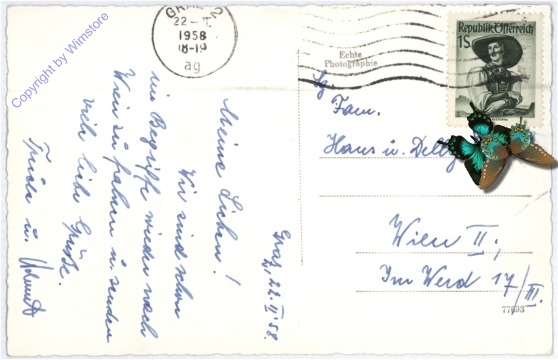 Copyright by Wimstore
GRAZ 2
22 - II
1958
18-19
ag
Republik Österreich
1S
Echte
Photographie
Graz, 22. II. 58.
Meine Lieben!
Wir sind schon
im Begriffe wieder nach
Wien zu fahren u. senden
viele liebe Grüsse.
u. Helmut
Fam.
Hans u.
Wien II;
Im Werd 17/III.
77693